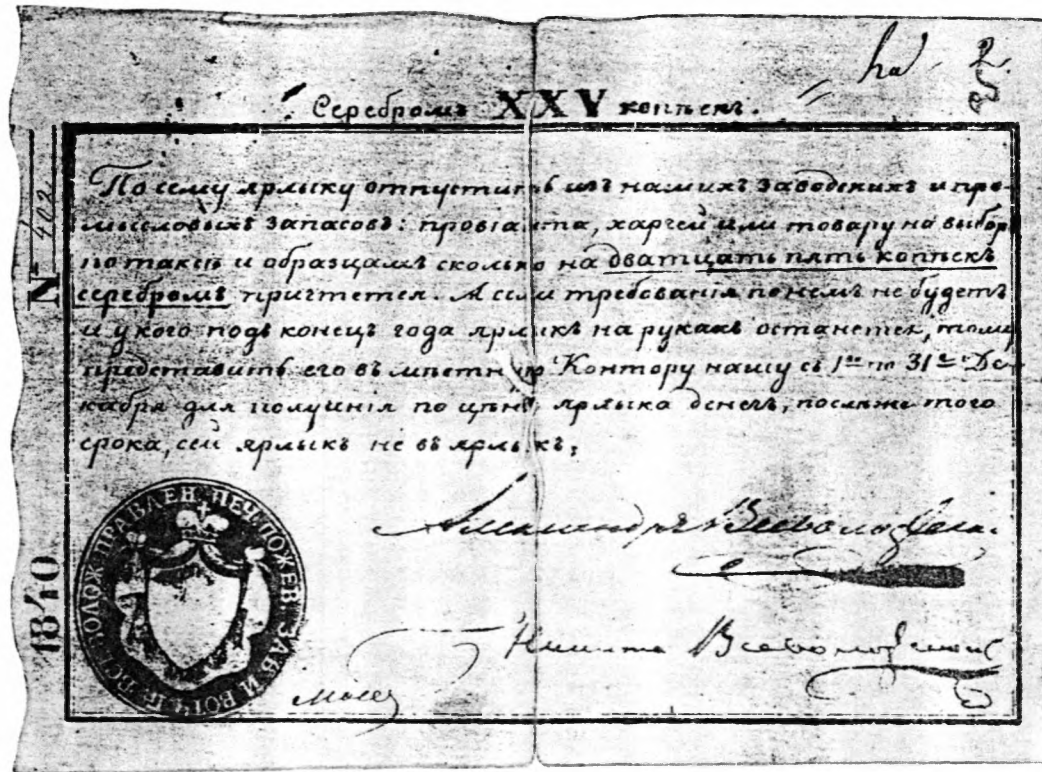 Серебромъ XXV копѣекъ.
По сему ярлыку отпустить изъ нашихъ заводскихъ и про-
мысловыхъ запасовъ: провіанта, харчей или товару на выборъ
по таксѣ и образцамъ сколько на дватцать пять копѣекъ
серебромъ причтется. А если требованія по немъ не будетъ
и у кого подъ конецъ года ярлыкъ на рукахъ останется, тому
представить его въ мѣстную Контору нашу съ 1го по 31е Де-
кабря для полученія по цѣнѣ ярлыка денегъ, послѣ же того
срока, сей ярлыкъ не въ ярлыкъ;
Александръ Всеволожской
Никита Всеволожской
№ 402
1840
ПРАВЛЕН. ПЕЧ. ПОЖЕВ. ЗАВ. И ВОТЧ. Г. ВСЕВОЛОЖ.